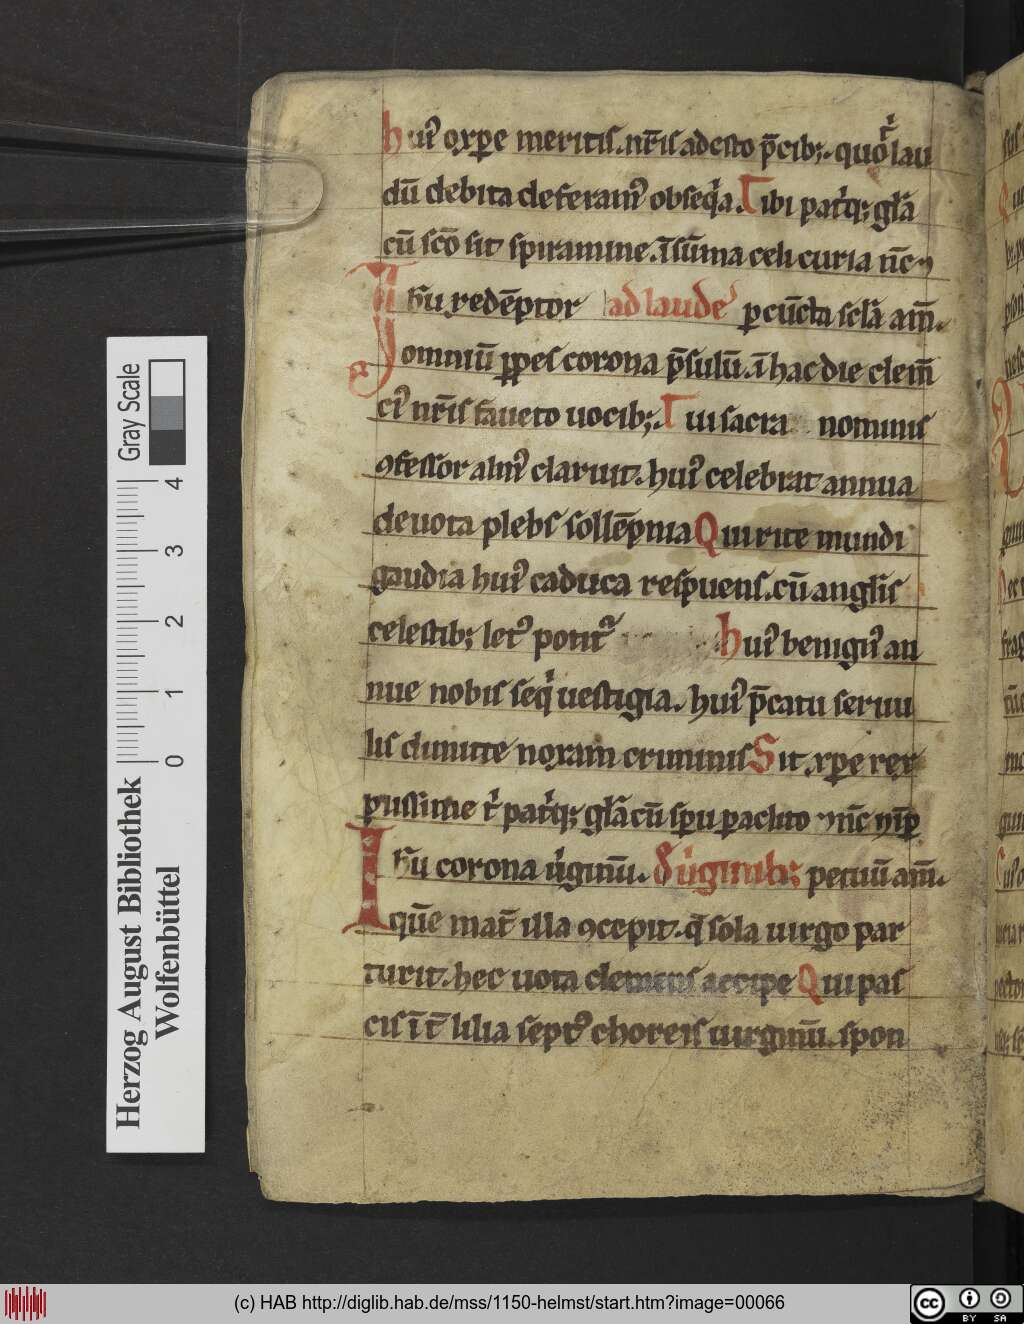 huiꝰ o xp̄e meritis. nr̄is adesto p̄cib; quo t̉ lau
dū debita deferamꝰ obseq̇a. Tibi patⁱq; gl̄a
cū sc̄o sit spiramine. ī sūma celi curia nc̄
Ih̄u redēptor ad laudē p cūcta scl̄a am̄.
omniū ꝑpes corona p̄sulū. ī hac die clem̄
ciꝰ nr̄is faueto uocib;. Tui sacra nominis
ꝯfessor almꝰ claruit. huiꝰ celebrat annua
deuota plebs sollēpnia Qui rite mundi
gaudia huiꝰ caduca respuens. cū angl̄is
celestib; letꝰ potit᷑ huiꝰ benignꝰ an
nue nobis seq̇ uestigia. huiꝰ p̄catu seruu
lis dimitte noxam criminis Sit xp̄e rex
piissime t̉ patⁱq; gl̄a cū spū paclito nc̄
Ih̄u corona ūginū. d̓ ūginib; petuū am̄.
quē mat̄ illa ꝯcepit. q̄ sola uirgo par
turit. hec uota clemens accipe Qui pas
cis īt̄ lilia septꝰ choreis uirginū. spon
Herzog August Bibliothek
Wolfenbüttel
0 1 2 3 4
Gray Scale
(c) HAB http://diglib.hab.de/mss/1150-helmst/start.htm?image=00066
cc BY SA